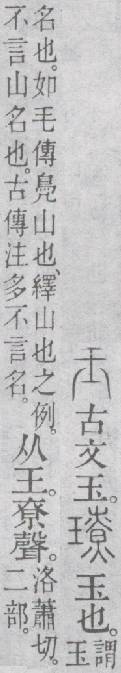 𤣪古文玉。璙玉也。謂
玉
名也。如毛傳鳧山也、繹山也之例。
不言山名也。古傳注多不言名。
从王。尞聲。
洛蕭切。
二部。